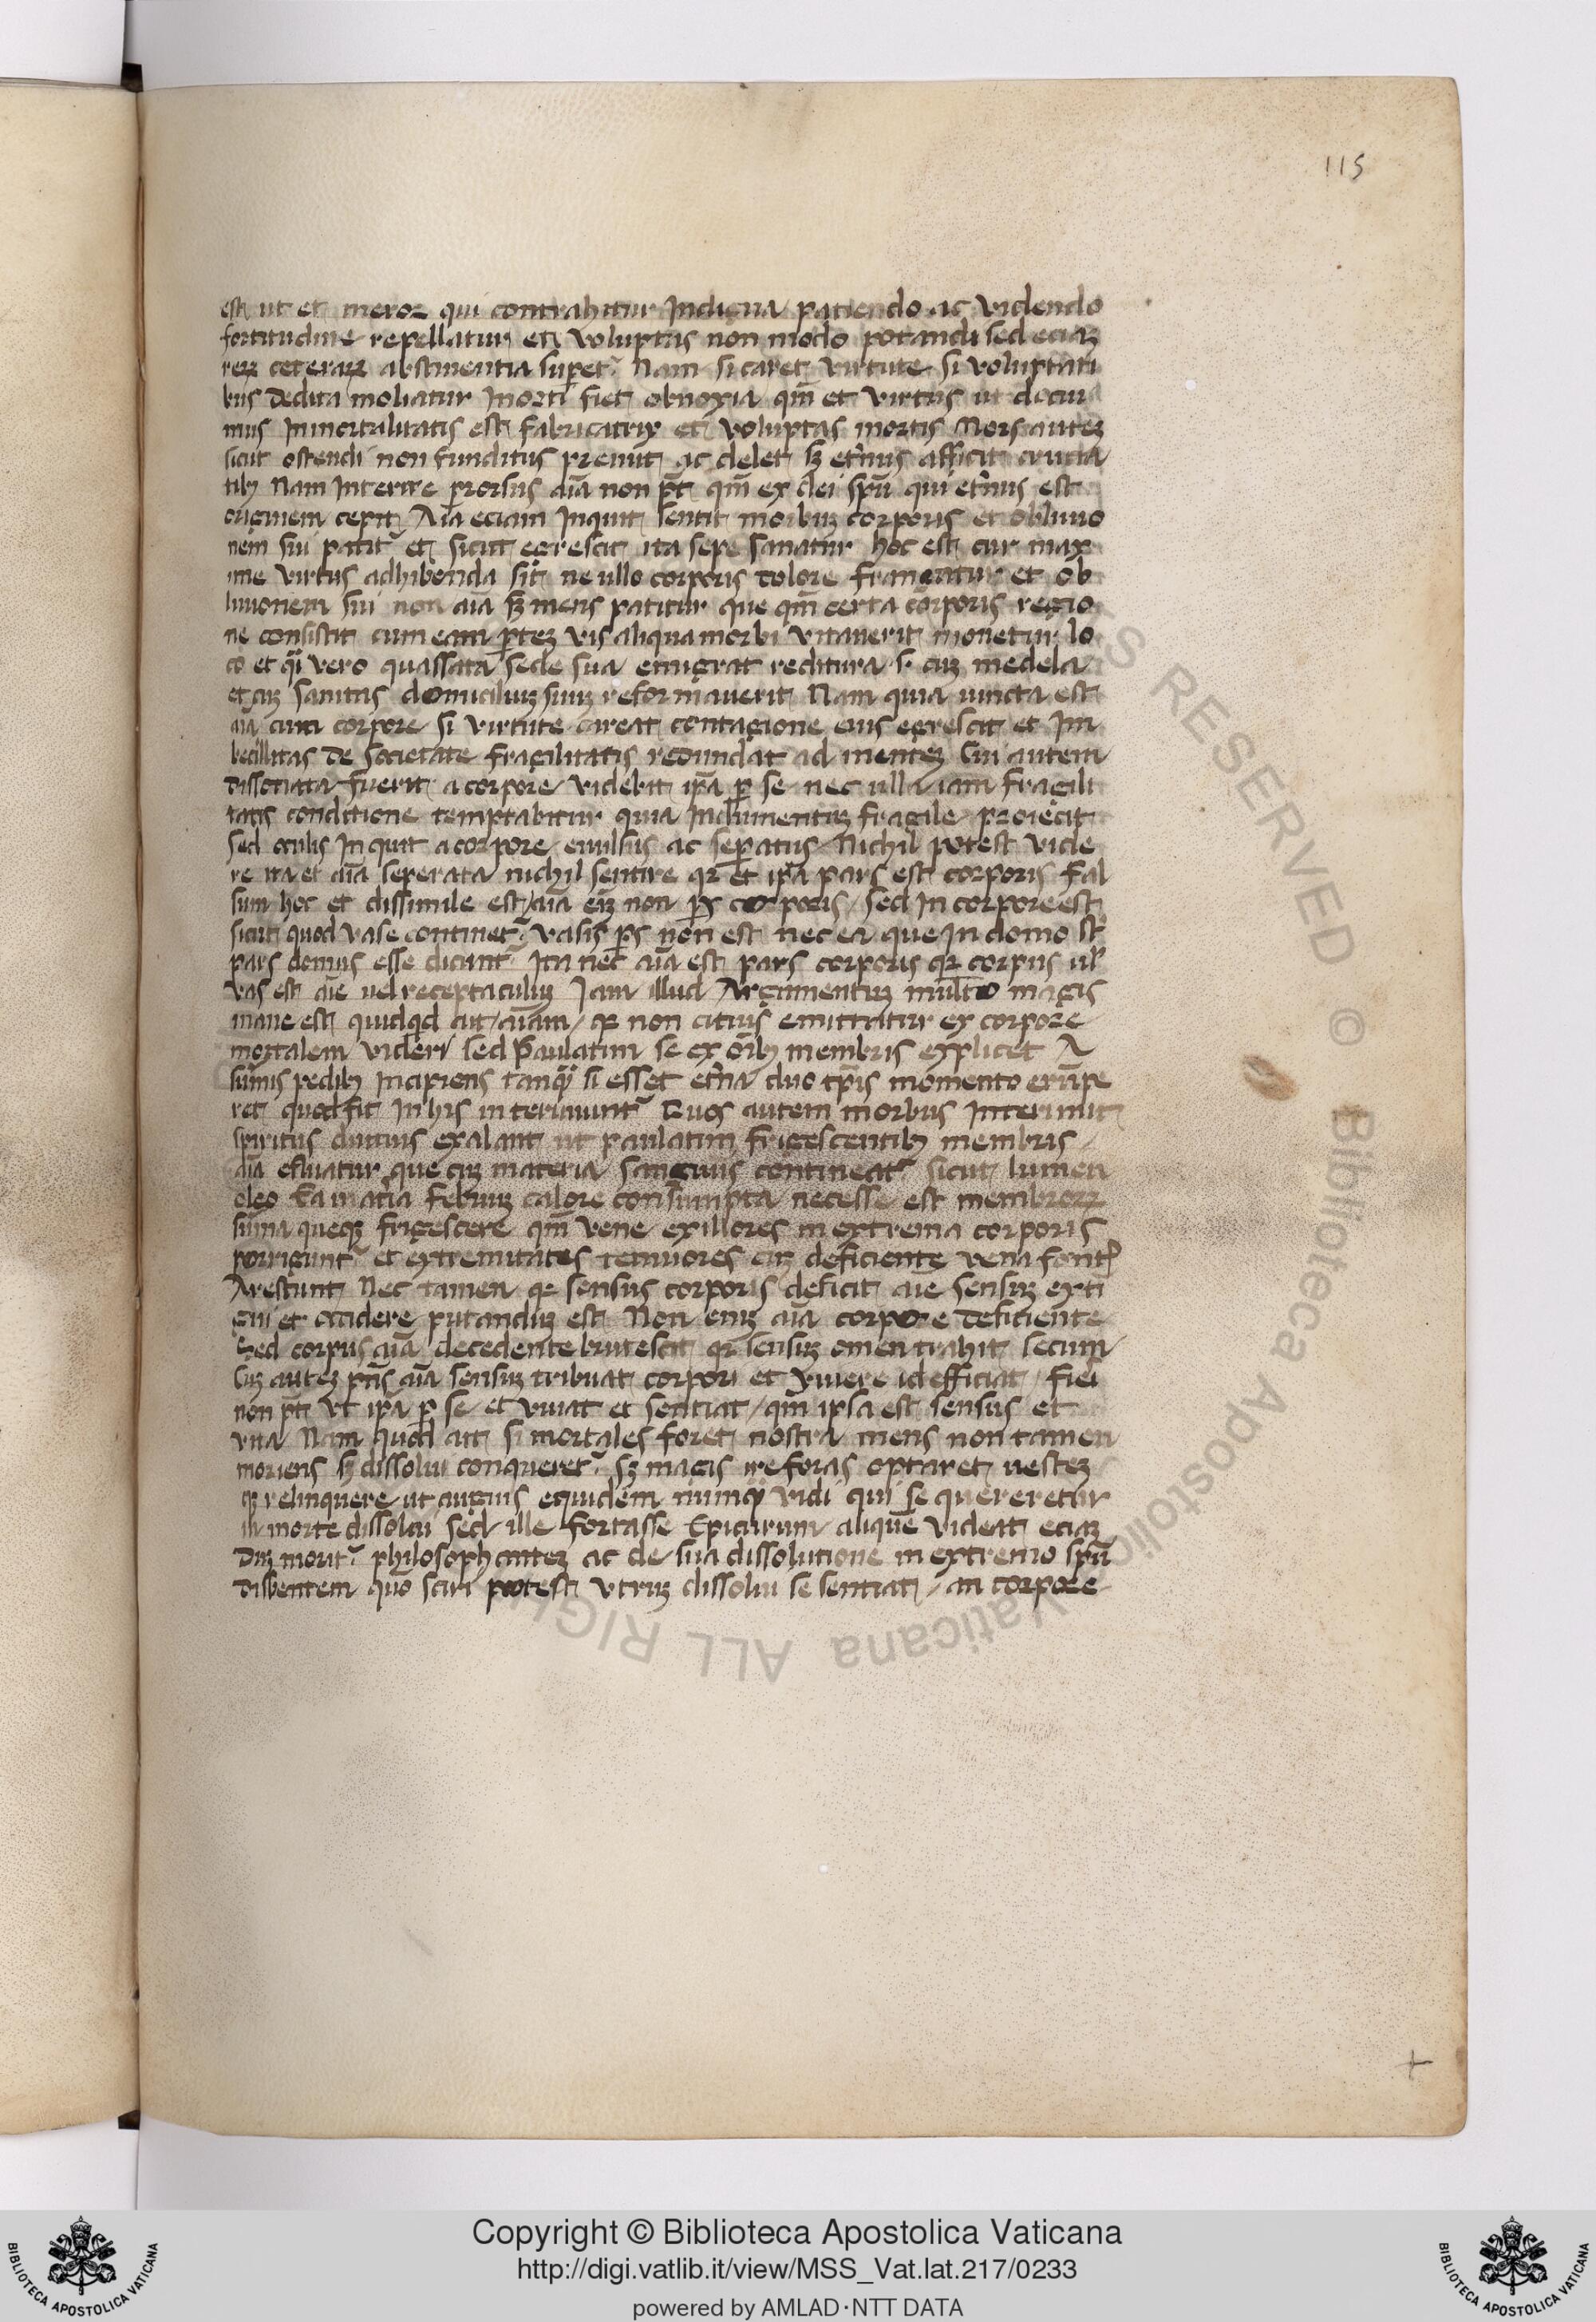 115
est ut et meror qui contrahitur Indigna patiendo ac videndo
fortitudine repellatur et voluptas non modo potandi sed eciaꝫ
reꝝ ceteraꝝ abstinentia superet᷑ Nam si caret virtute si voluptati
bus dedita moliatur morti fiet obnoxia qm̄ et virtus ut docui
mus Inmortalitatis est fabricatrix et voluptas mortis Mors auteꝫ
sicut ostendi non funditus premit ac delet sꝫ et̓nus afficit crucia
tibꝫ Nam Interire prorsus aīa non pt̄ qm̄ ex dei spū qui et̓nus est
originem cepit Aīa eciam Inquit sentit morbuꝫ corporis et oblivio
nem sui patit᷑ et sicut egrescit ita sepe sanatur hoc est cur max
ime virtus adhibenda sit ne ullo corporis dolore frangatur et ob
livionem sui non aīa sꝫ mens patitur que qm̄ certa corporis regio
ne consistit cum eam ꝑteꝫ vis aliqua morbi vitaverit monetur lo
co et qͣi vero quassata sede sua emigrat reditura s. cuꝫ medela
et cuꝫ sanitas domiciliuꝫ suuꝫ reformaverit Nam quia iuncta est
aīa cum corpore si virtute careat contagione eius egrescit et Im
becillitas de societate fragilitatis redundat ad menteꝫ Cui autem
dissociata fuerit a corpore videbit ip̄a ꝑ se nec ulla iam fragili
tatis conditione temptabitur quia Indumentuꝫ fragile proiecit
Sed oculis Inquit a corpore evulsus ac seꝑatus Nichil potest vide
re ita et aīa seperata nichil sentire qꝛ et ip̄a pars est corporis fal
sum hoc et dissimile est / aīa eiꝫ non ꝑs corporis / sed In corpore est
sicut quod vase continet᷑ vasis ꝑs non est nec ea que In domo st̄
pars domus esse dicunt᷑ Ita nec aīa est pars corporis qꝛ corpus ul̓
vas est aīe vel receptaculuꝫ Jam illud Argumentuꝫ multo magis
inane est quidqͥd ait / aīam / qꝛ non citius emittatur ex corpore
mortalem videri sed Paulatim se ex oīb membris explicet A
sūmis pedibꝫ Incipiens tanqͣ si esset et̓na duo tp̄is momento erūpe
ret quod fit In his interimunt᷑ Quos autem morbus Interimit
spiritus diutius exalant ut paulatim frigescentibꝫ membris /
aīa efluatur que cuꝫ materia sanguinis contineat᷑ sicut lumen
oleo Ea mat̓ia febriuꝫ calore consumpta necesse est membroꝝ
sūma queqꝫ frigescere qm̄ vene exiliores in extrema corporis
porrigunt᷑ et extremitates tenuiores cuꝫ deficiente vena fontꝭ
Arescunt Nec tamen qꝛ sensus corporis deficit aīe sensuꝫ exti
gui et occidere putanduꝫ est Non eniꝫ aīa corpore deficiente
Sed corpus aīa decedente brutescit qꝛ sensuꝫ omen trahit secum
Cuꝫ auteꝫ pn̄s aīa sensuꝫ tribuat corpori et vivere id efficiat / fieri
non pt̄ ut ip̄a ꝑ se et vivat et sentiat / qm̄ ipsa est sensus et
vita Nam quod ait si mortales foret nostra mens non tamen
moriens sꝫ dissolui conqueret᷑ sꝫ magis ire foras optaret vesteꝫ
qꝫ relinquere ut anguis equidem nunqͣ vidi qui se quereretur
in morte dissolui sed ille fortasse Epicurum aliquē videat eciaꝫ
Duꝫ morit᷑ philosophanteꝫ ac de sua dissolutione in extremo spū
disserentem quo sciri potest vtruꝫ dissolui se sentiat / an corpore
Copyright © Biblioteca Apostolica Vaticana
http://digi.vatlib.it/view/MSS_Vat.lat.217/0233
powered by AMLAD·NTT DATA
BIBLIOTECA APOSTOLICA VATICANA
BIBLIOTECA APOSTOLICA VATICANA